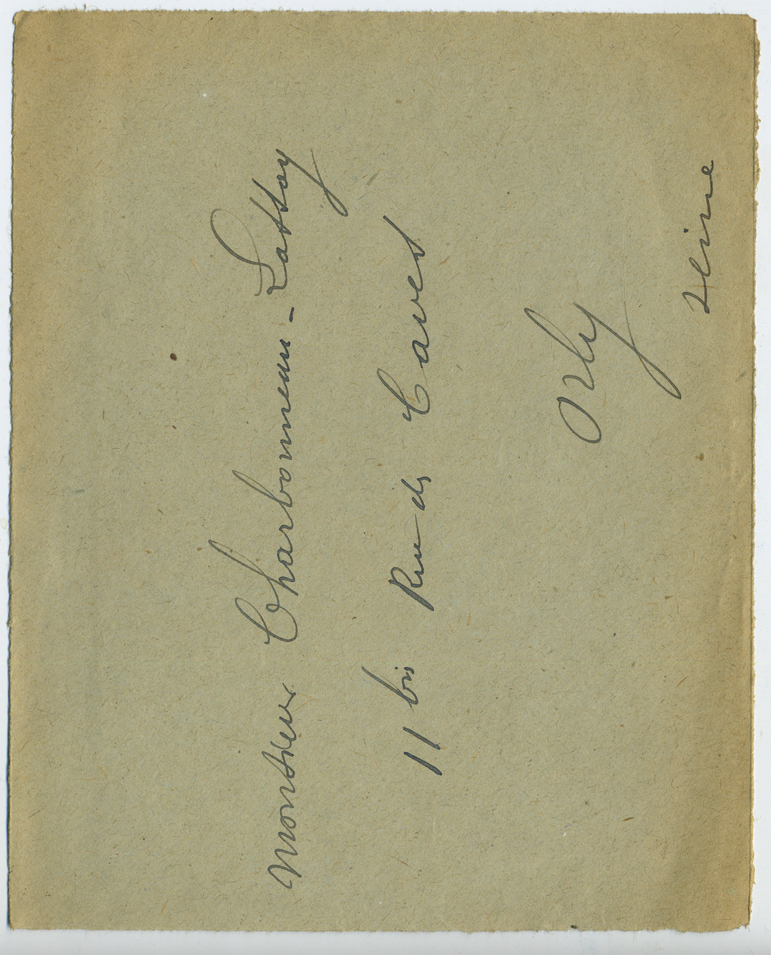 Monsieur Charbonneau-Lassay
11 bis Rue de Cavet
Orly
Seine